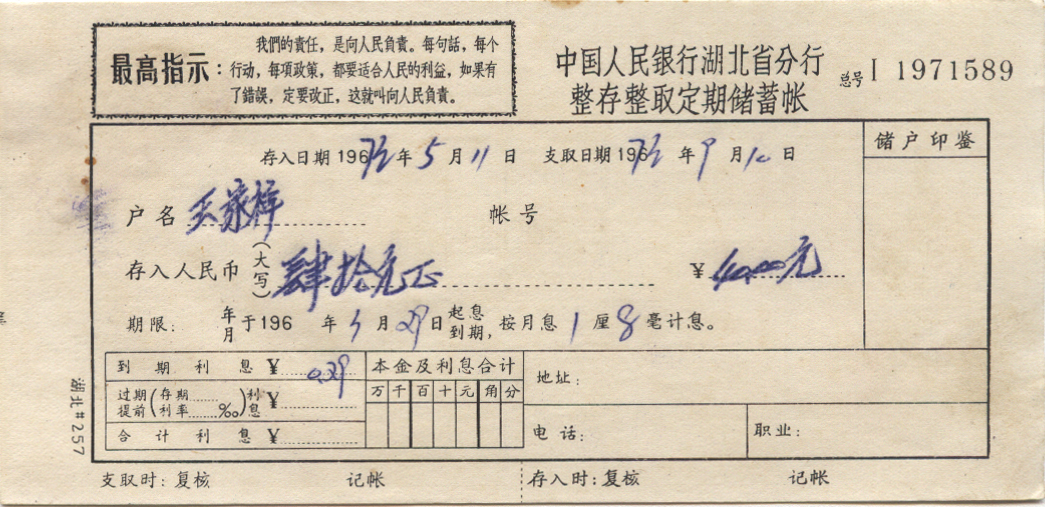 最高指示：
我們的責任，是向人民負責。每句話，每个
行动，每項政策，都要适合人民的利益，如果有
了錯誤，定要改正，这就叫向人民負責。
中国人民银行湖北省分行
整存整取定期储蓄帐
总号 I 1971589
存入日期196 年5月11日 支取日期196 年9月10日
储户印鉴
户名 王家祥 帐号
存入人民币(大写)肆拾元正 ¥40.00元
期限: 年月于196 年 月29日起息到期，按月息1厘8毫计息。
到期利息 ¥ 0.29
过期提前(存期……利率……‰)利息¥
合计利息 ¥
本金及利息合计
万千百十元角分
地址:
电话: 职业:
湖北#257
支取时:复核 记帐 存入时:复核 记帐